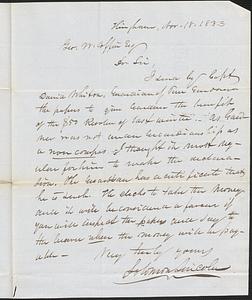 Hingham, Nov. 18. 1833
Geo. W. Coffin Esq
Dr Sir,
I send by Capt
David Whiton, Guardian of Perez Gardner
the papers to give Gardner the benefit
of the Resolve of last winter. As Gard
ner was not under Guardianship as
non compos I thought it most re
gular for him to make the declara
tion. The guardian has a certificate that
he is such. He elects to take the money
and it will be considered a favour if
you will inspect the papers and say to
the bearer when the money will be pay
able -
Very truly yours
Solomon Lincoln